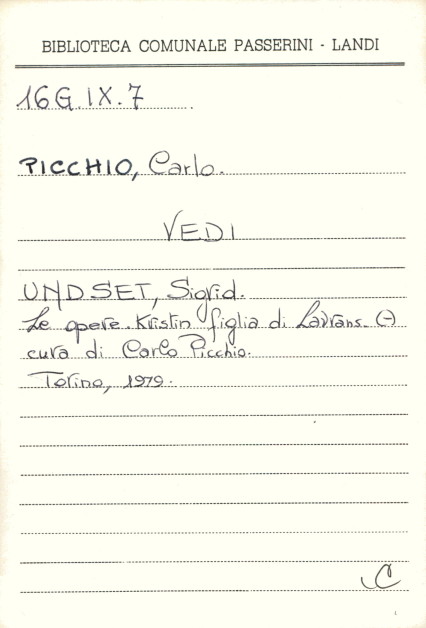 BIBLIOTECA COMUNALE PASSERINI - LANDI
16G.IX.7
PICCHIO, Carlo.
VEDI
UNDSET, Sigrid.
Le opere. Kristin figlia di Lavrans. (-)
cura di Carlo Picchio.
Torino, 1979.
C